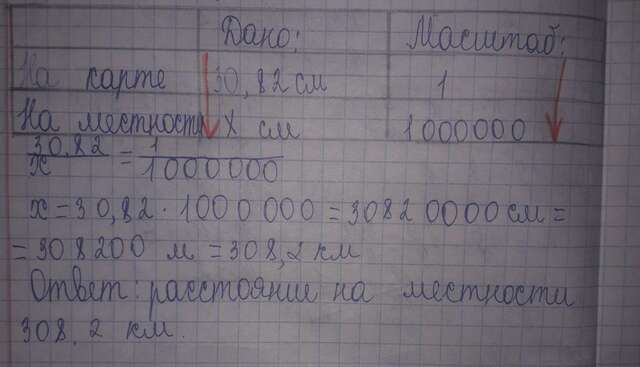 Дано: Масштаб:
На карте 30,82 см 1
На местности x см 1000000
30,82/x = 1/1000000
x = 30,82 · 1000 000 = 3082 0000 см =
= 308 200 м = 308,2 км
Ответ: расстояние на местности
308,2 км.